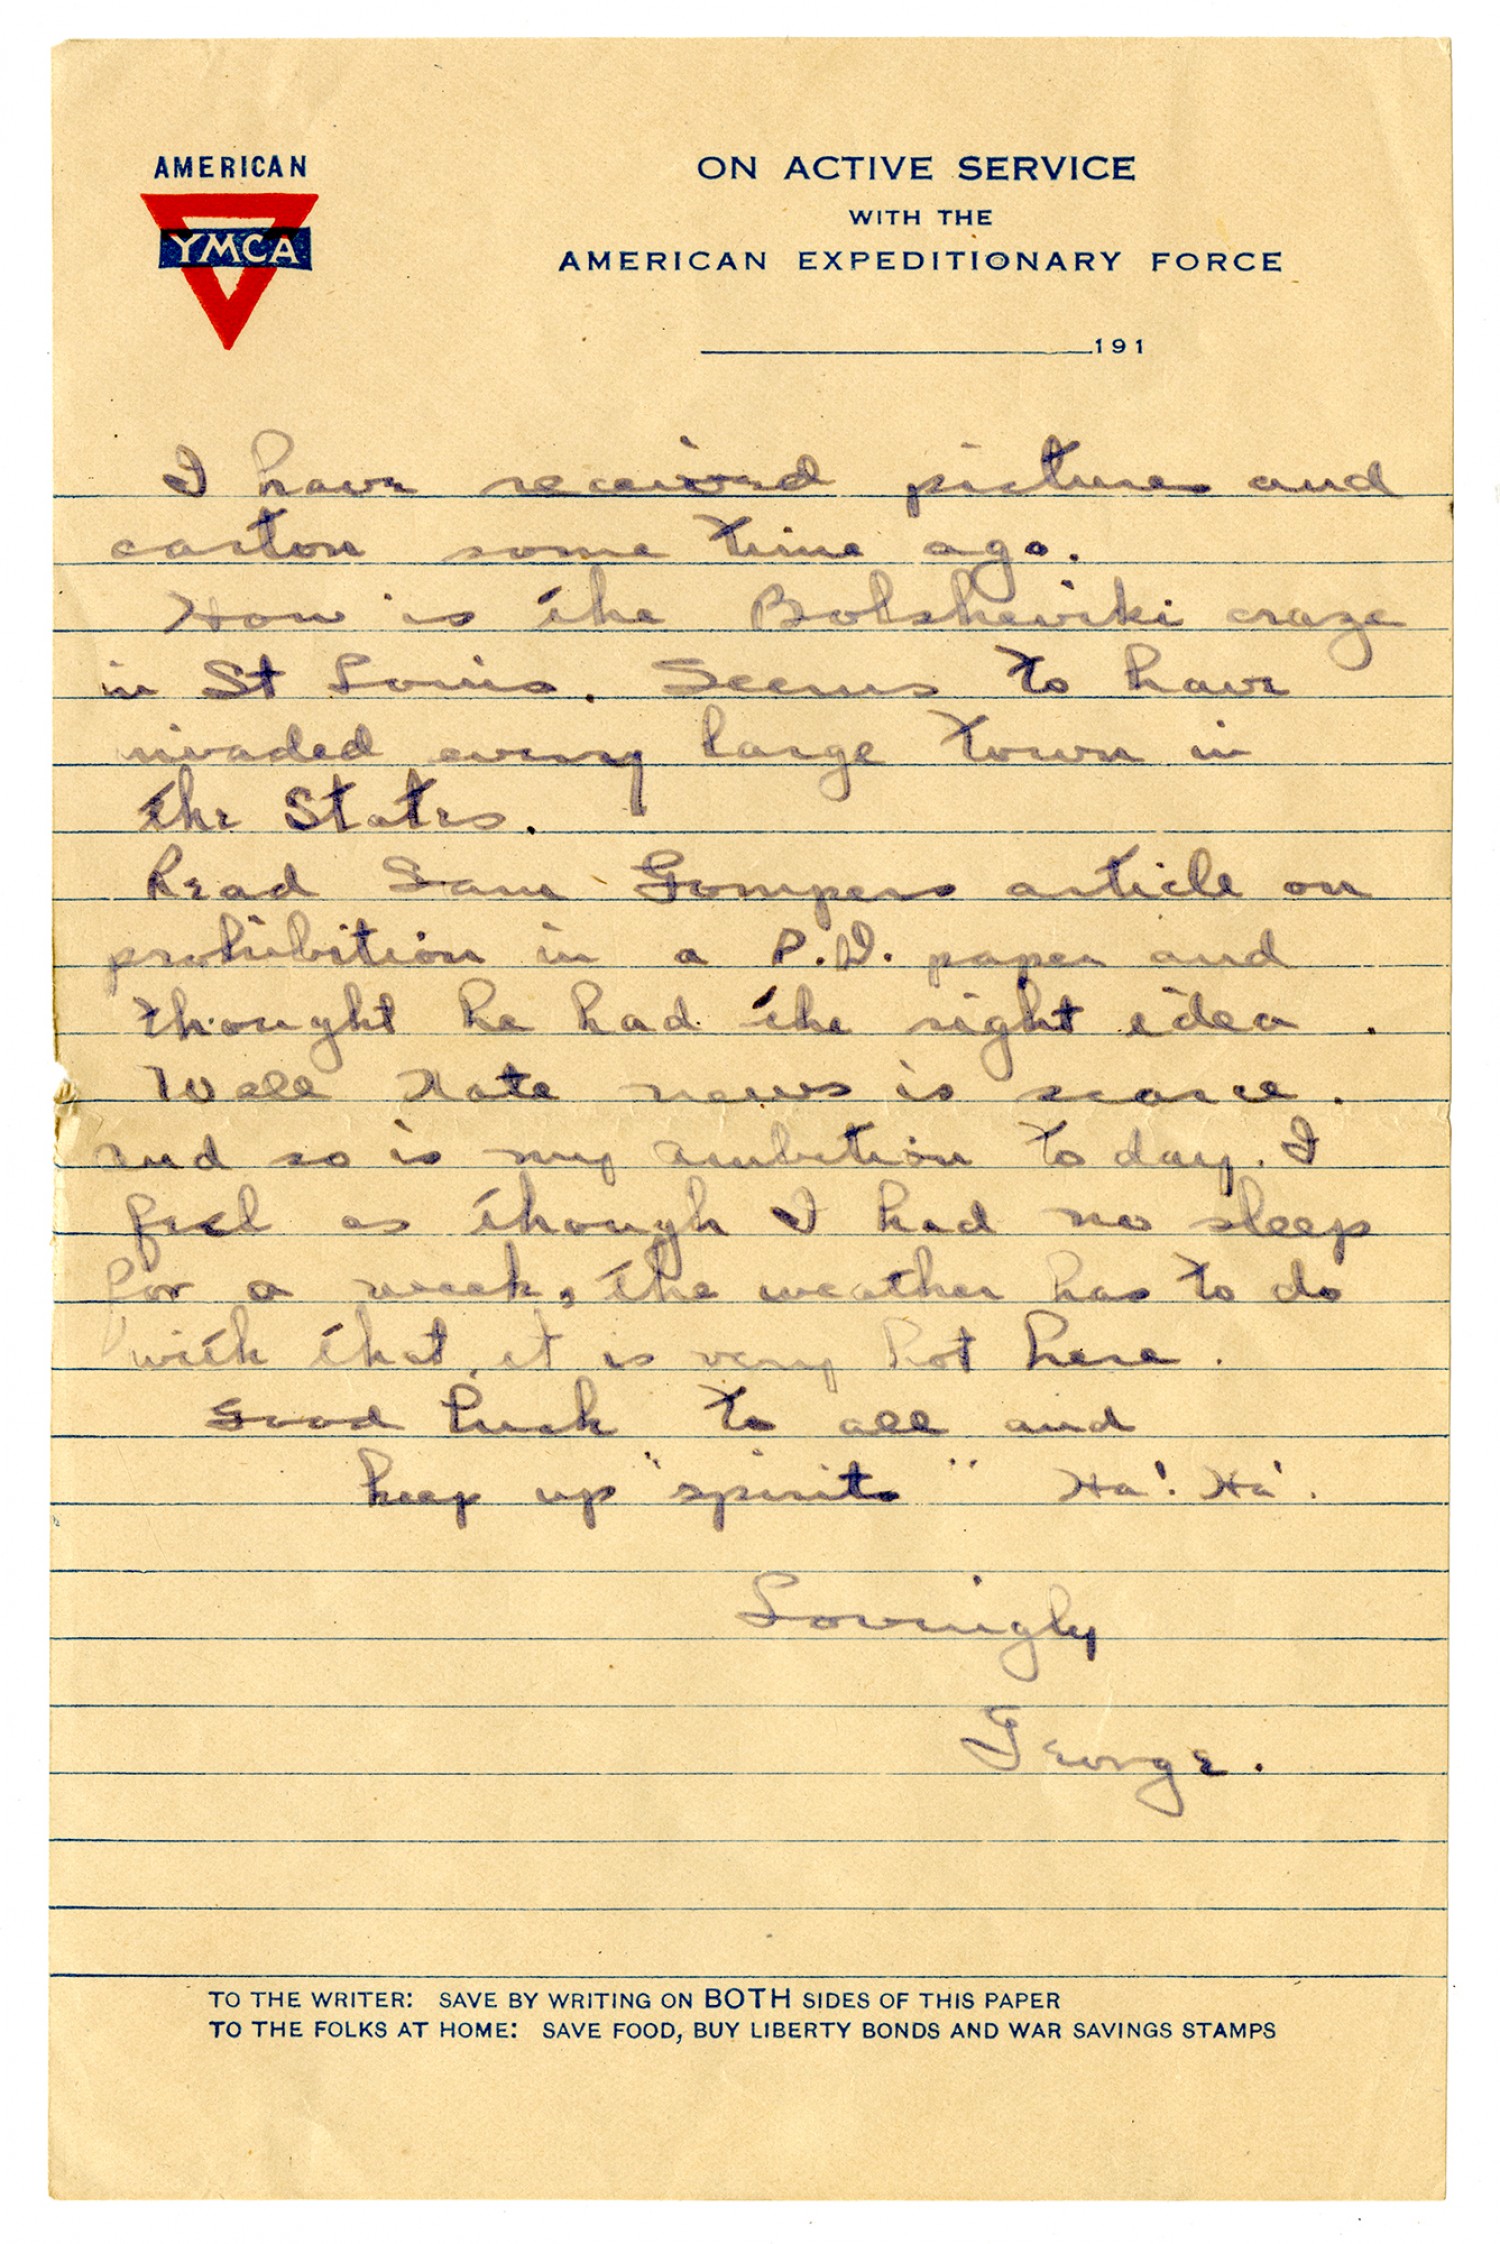 AMERICAN
YMCA
ON ACTIVE SERVICE
WITH THE
AMERICAN EXPEDITIONARY FORCE
191
I have received pictures and
carton some time ago.
How is the Bolsheviki craze
in St Louis. Seems to have
invaded every large town in
the States.
Read Sam Gompers article on
prohibition in a P.D. paper and
thought he had the right idea.
Well Kate news is scarce.
and so is my ambition to day. I
feel as though I had no sleep
for a week, the weather has to do
with that, it is very hot here.
Good Luck to all and
keep up "spirits" Ha! Ha!
Lovingly
George.
TO THE WRITER: SAVE BY WRITING ON BOTH SIDES OF THIS PAPER
TO THE FOLKS AT HOME: SAVE FOOD, BUY LIBERTY BONDS AND WAR SAVINGS STAMPS